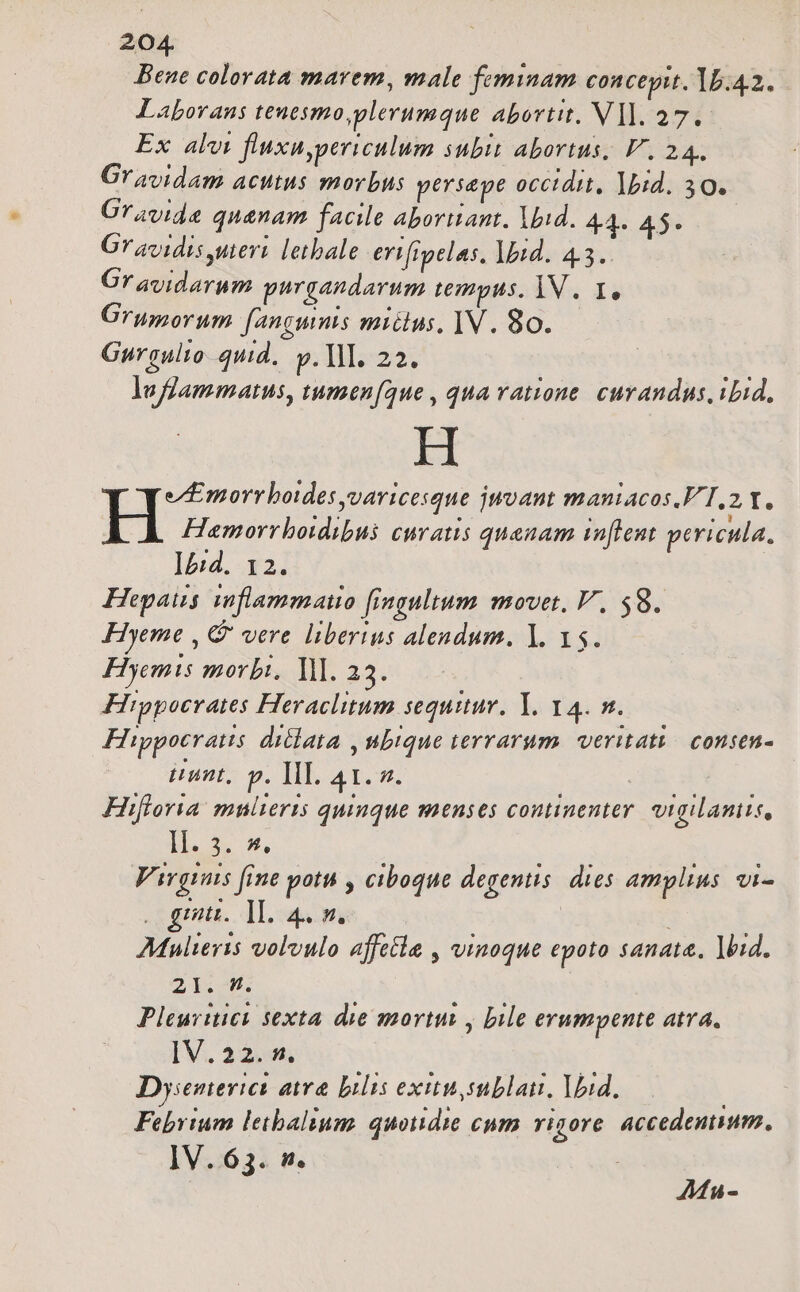 204
Bene colorata marem, male feminam concepit. Ib. 42.
Laborans tenesmo, plerumque abortit. VII. 27.
Ex alvi fluxu, periculum subit abortus. V. 24.
Gravidam acutus morbus persæpe occidit. Ibid. 30.
Gravidæ quænam facile abortiant. Ibid. 44. 45.
Gravidis, uteri lethale erisipelas. Ibid. 43.
Gravidarum purgandarum tempus. IV. 1.
Grumorum sanguinis mictus. IV. 80.
Gurgulio quid. p. III. 22.
Inflammatus, tumensque, qua ratione curandus. ibid.
H
HÆmorrhoides, varicesque juvant maniacos. VI. 21.
Hæmorrhoidibus curatis quænam instent pericula.
Ibid. 12.
Hepatis inflammatio singultum movet. V. 58.
Hyeme, & vere liberius alendum. I. 15.
Hyemis morbi. III. 23.
Hippocrates Heraclitum sequitur. I. 14. n.
Hippocratis dictata, ubique terrarum veritati consen-
tiunt. p. III. 41. n.
Historia mulieris quinque menses continenter vigilantis.
II. 3. n.
Virginis sine potu, ciboque degentis dies amplius vi-
ginti. II. 4. n.
Mulieris volvulo affectæ, vinoque epoto sanatæ. Ibid.
21. n.
Pleuritici sexta die mortui, bile erumpente atra.
IV. 22. n.
Dysenterici atræ bilis exitu, sublati. Ibid.
Febrium lethalium quotidie cum rigore accedentium.
IV. 63. n.
Mu-